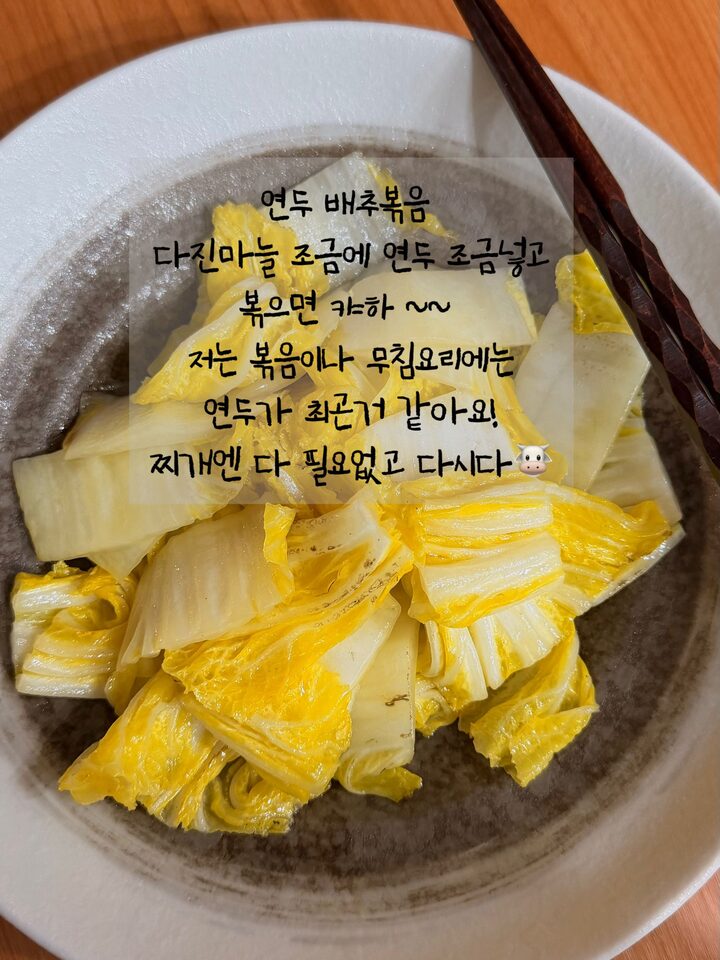 연두 배추볶음
다진마늘 조금에 연두 조금넣고
볶으면 캬하 ~~
저는 볶음이나 무침요리에는
연두가 최곤거 같아요!
찌개엔 다 필요없고 다시다🐮